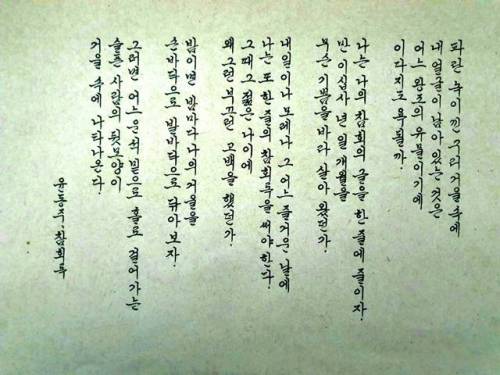 파란 녹이 낀 구리거울 속에
내 얼굴이 남아있는 것은
어느 왕조의 유물이기에
이다지도 욕될까.
나는 나의 참회의 글을 한 줄에 줄이자.
만 이십사 년 일 개월을
무슨 기쁨을 바라 살아 왔던가.
내일이나 모레나 그 어느 즐거운 날에
나는 또 한 줄의 참회록을 써야 한다.
그때 그 젊은 나이에
왜 그런 부끄런 고백을 했던가.
밤이면 밤마다 나의 거울을
손바닥으로 발바닥으로 닦아보자.
그러면 어느 운석 밑으로 홀로 걸어가는
슬픈 사람의 뒷모양이
거울 속에 나타나온다.
윤동주. 참회록